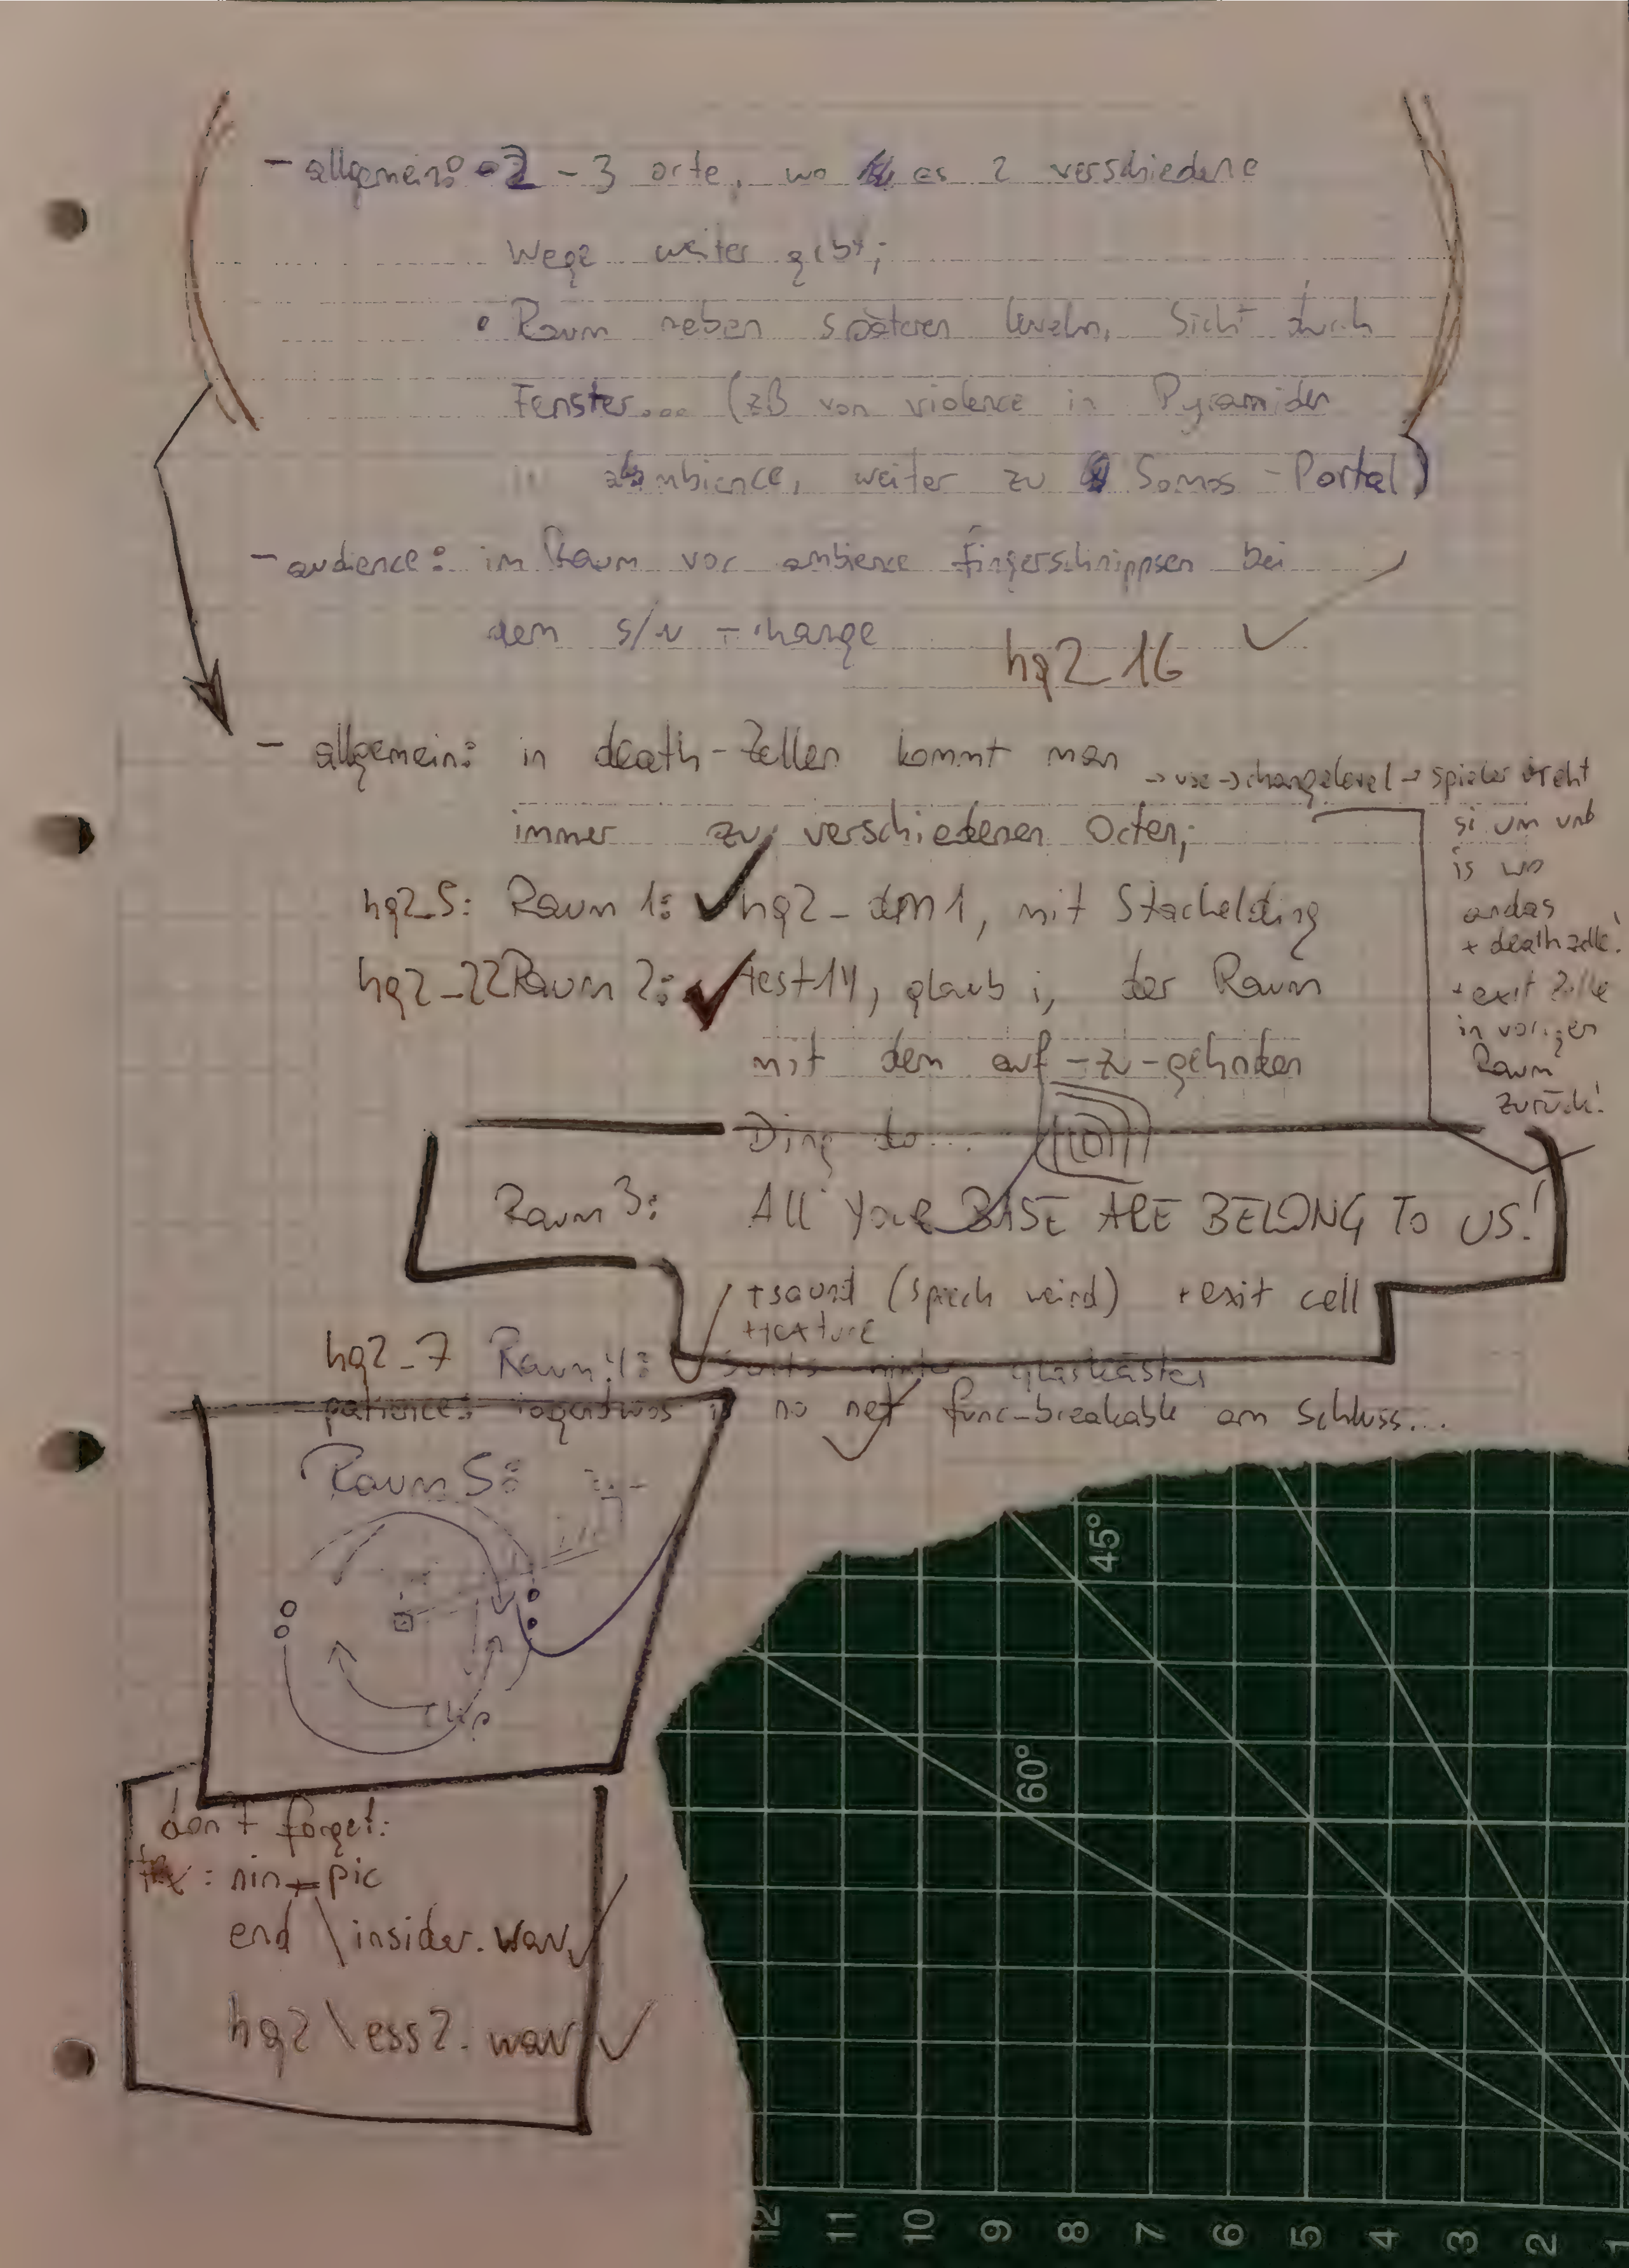 - allgemein: • 2 - 3 orte, wo es 2 verschiedene
Wege weiter gibt;
• Raum neben späteren leveln, Sicht durch
Fenster... (zB von violence in Pyramiden
ambience, weiter zu Somos - Portal)
- audience: im Raum vor ambience fingerschnippsen bei
dem s/w - change
hq2_16
- allgemein: in death-Zellen kommt man
immer zu verschiedenen Orten;
-> use -> changelevel -> spieler dreht
si um und
is wo
andas
+ deathzelle!
+ exit Zelle
in vorigen
Raum
zurück!
hq2_5: Raum 1: hq2_dm1, mit Stachelding
hq2_22 Raum 2: test14, glaub i, der Raum
mit dem auf-zu-gehnden
Ding do...
Raum 3: All YOUR BASE ARE BELONG TO US!
+ sound (speech weird) + exit cell
+ texture
hq2_7 Raum 4: hinter glaskästen
patience: irgendwos is no net func_breakable am schluss...
Raum 5:
clip
don't forget:
: nin_pic
end \insider.wav
hq2\ess2.wav
45°
60°
12 11 10 9 8 7 6 5 4 3 2 1